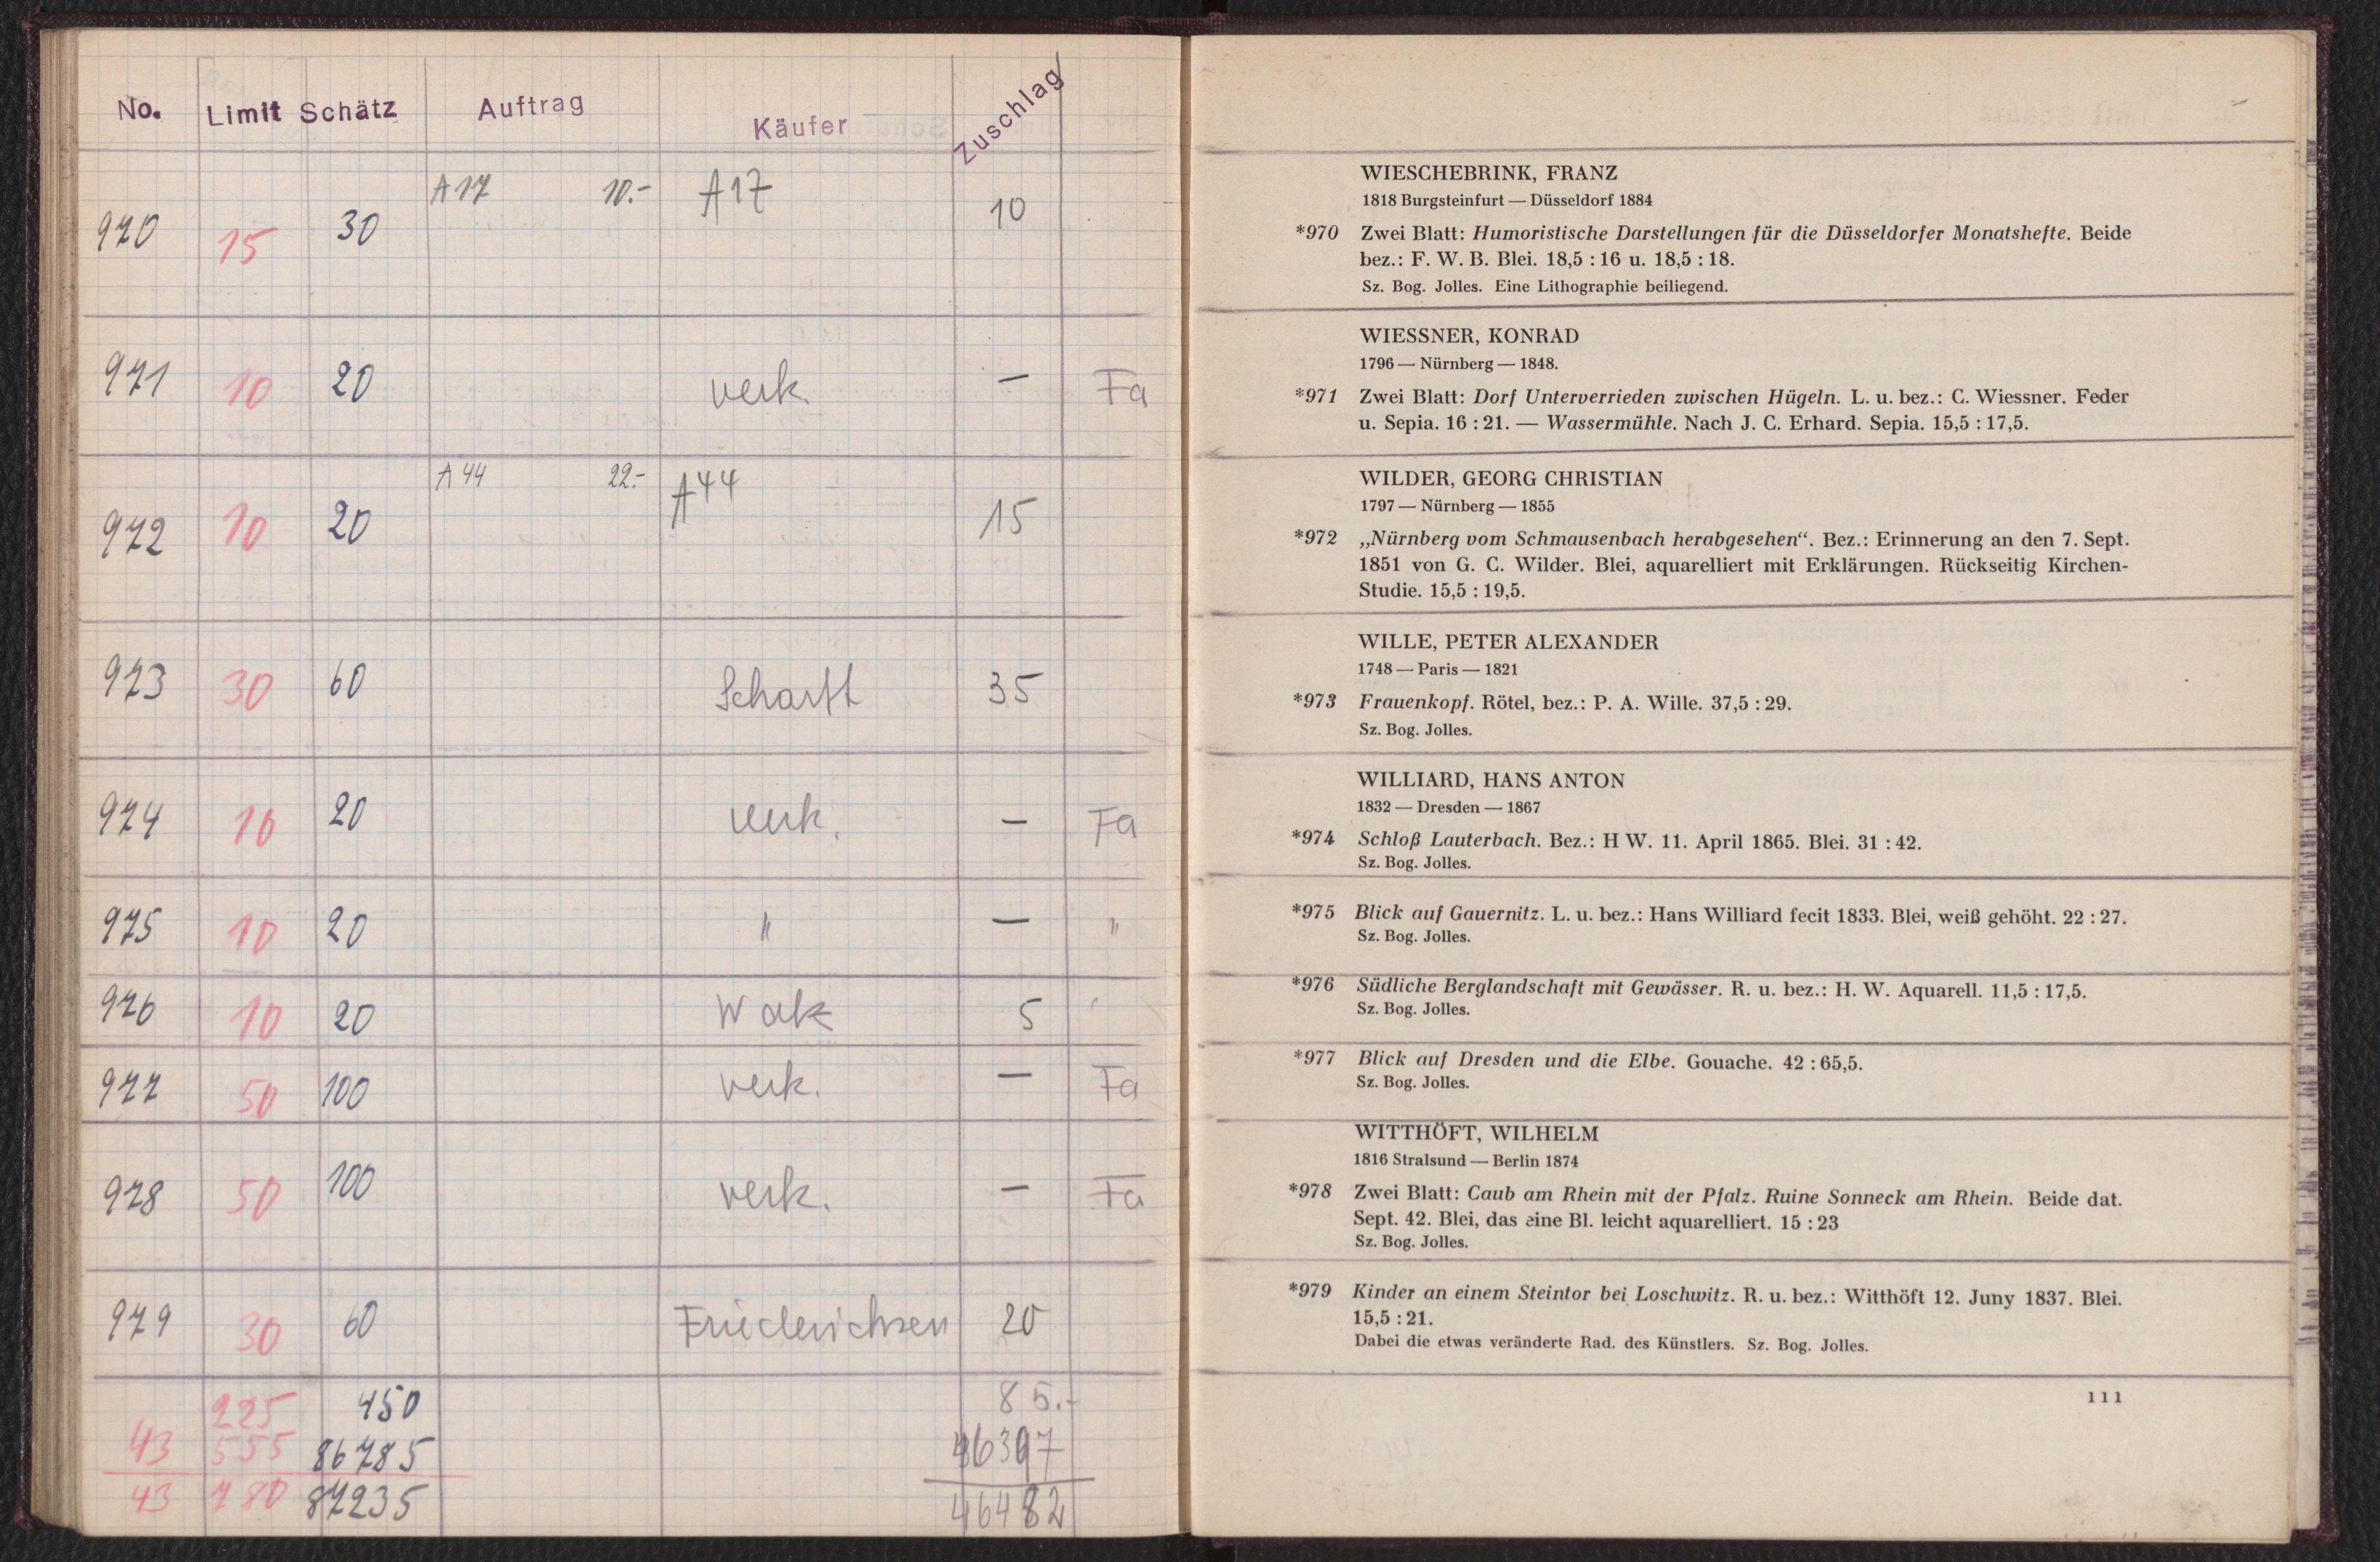 No. Limit Schätz Auftrag Käufer Zuschlag
A17 10.- A17
970 15 30 10
971 10 20 verk. — Fa
A 44 22.- A 44
972 10 20 15
973 30 60 Scharff 35
974 10 20 verk. — Fa
975 10 20 " — "
976 10 20 Wak 5 '
977 50 100 verk. — Fa
978 50 100 verk. — Fa
979 30 60 Friederichsen 20
225 450 85.-
43 555 86785 46397
43 780 87235 46482
WIESCHEBRINK, FRANZ
1818 Burgsteinfurt — Düsseldorf 1884
*970 Zwei Blatt: Humoristische Darstellungen für die Düsseldorfer Monatshefte. Beide
bez.: F. W. B. Blei. 18,5 : 16 u. 18,5 : 18.
Sz. Bog. Jolles. Eine Lithographie beiliegend.
WIESSNER, KONRAD
1796 — Nürnberg — 1848.
*971 Zwei Blatt: Dorf Unterverrieden zwischen Hügeln. L. u. bez.: C. Wiessner. Feder
u. Sepia. 16 : 21. — Wassermühle. Nach J. C. Erhard. Sepia. 15,5 : 17,5.
WILDER, GEORG CHRISTIAN
1797 — Nürnberg — 1855
*972 „Nürnberg vom Schmausenbach herabgesehen“. Bez.: Erinnerung an den 7. Sept.
1851 von G. C. Wilder. Blei, aquarelliert mit Erklärungen. Rückseitig Kirchen-
Studie. 15,5 : 19,5.
WILLE, PETER ALEXANDER
1748 — Paris — 1821
*973 Frauenkopf. Rötel, bez.: P. A. Wille. 37,5 : 29.
Sz. Bog. Jolles.
WILLIARD, HANS ANTON
1832 — Dresden — 1867
*974 Schloß Lauterbach. Bez.: H W. 11. April 1865. Blei. 31 : 42.
Sz. Bog. Jolles.
*975 Blick auf Gauernitz. L. u. bez.: Hans Williard fecit 1833. Blei, weiß gehöht. 22 : 27.
Sz. Bog. Jolles.
*976 Südliche Berglandschaft mit Gewässer. R. u. bez.: H. W. Aquarell. 11,5 : 17,5.
Sz. Bog. Jolles.
*977 Blick auf Dresden und die Elbe. Gouache. 42 : 65,5.
Sz. Bog. Jolles.
WITTHÖFT, WILHELM
1816 Stralsund — Berlin 1874
*978 Zwei Blatt: Caub am Rhein mit der Pfalz. Ruine Sonneck am Rhein. Beide dat.
Sept. 42. Blei, das eine Bl. leicht aquarelliert. 15 : 23
Sz. Bog. Jolles.
*979 Kinder an einem Steintor bei Loschwitz. R. u. bez.: Witthöft 12. Juny 1837. Blei.
15,5 : 21.
Dabei die etwas veränderte Rad. des Künstlers. Sz. Bog. Jolles.
111